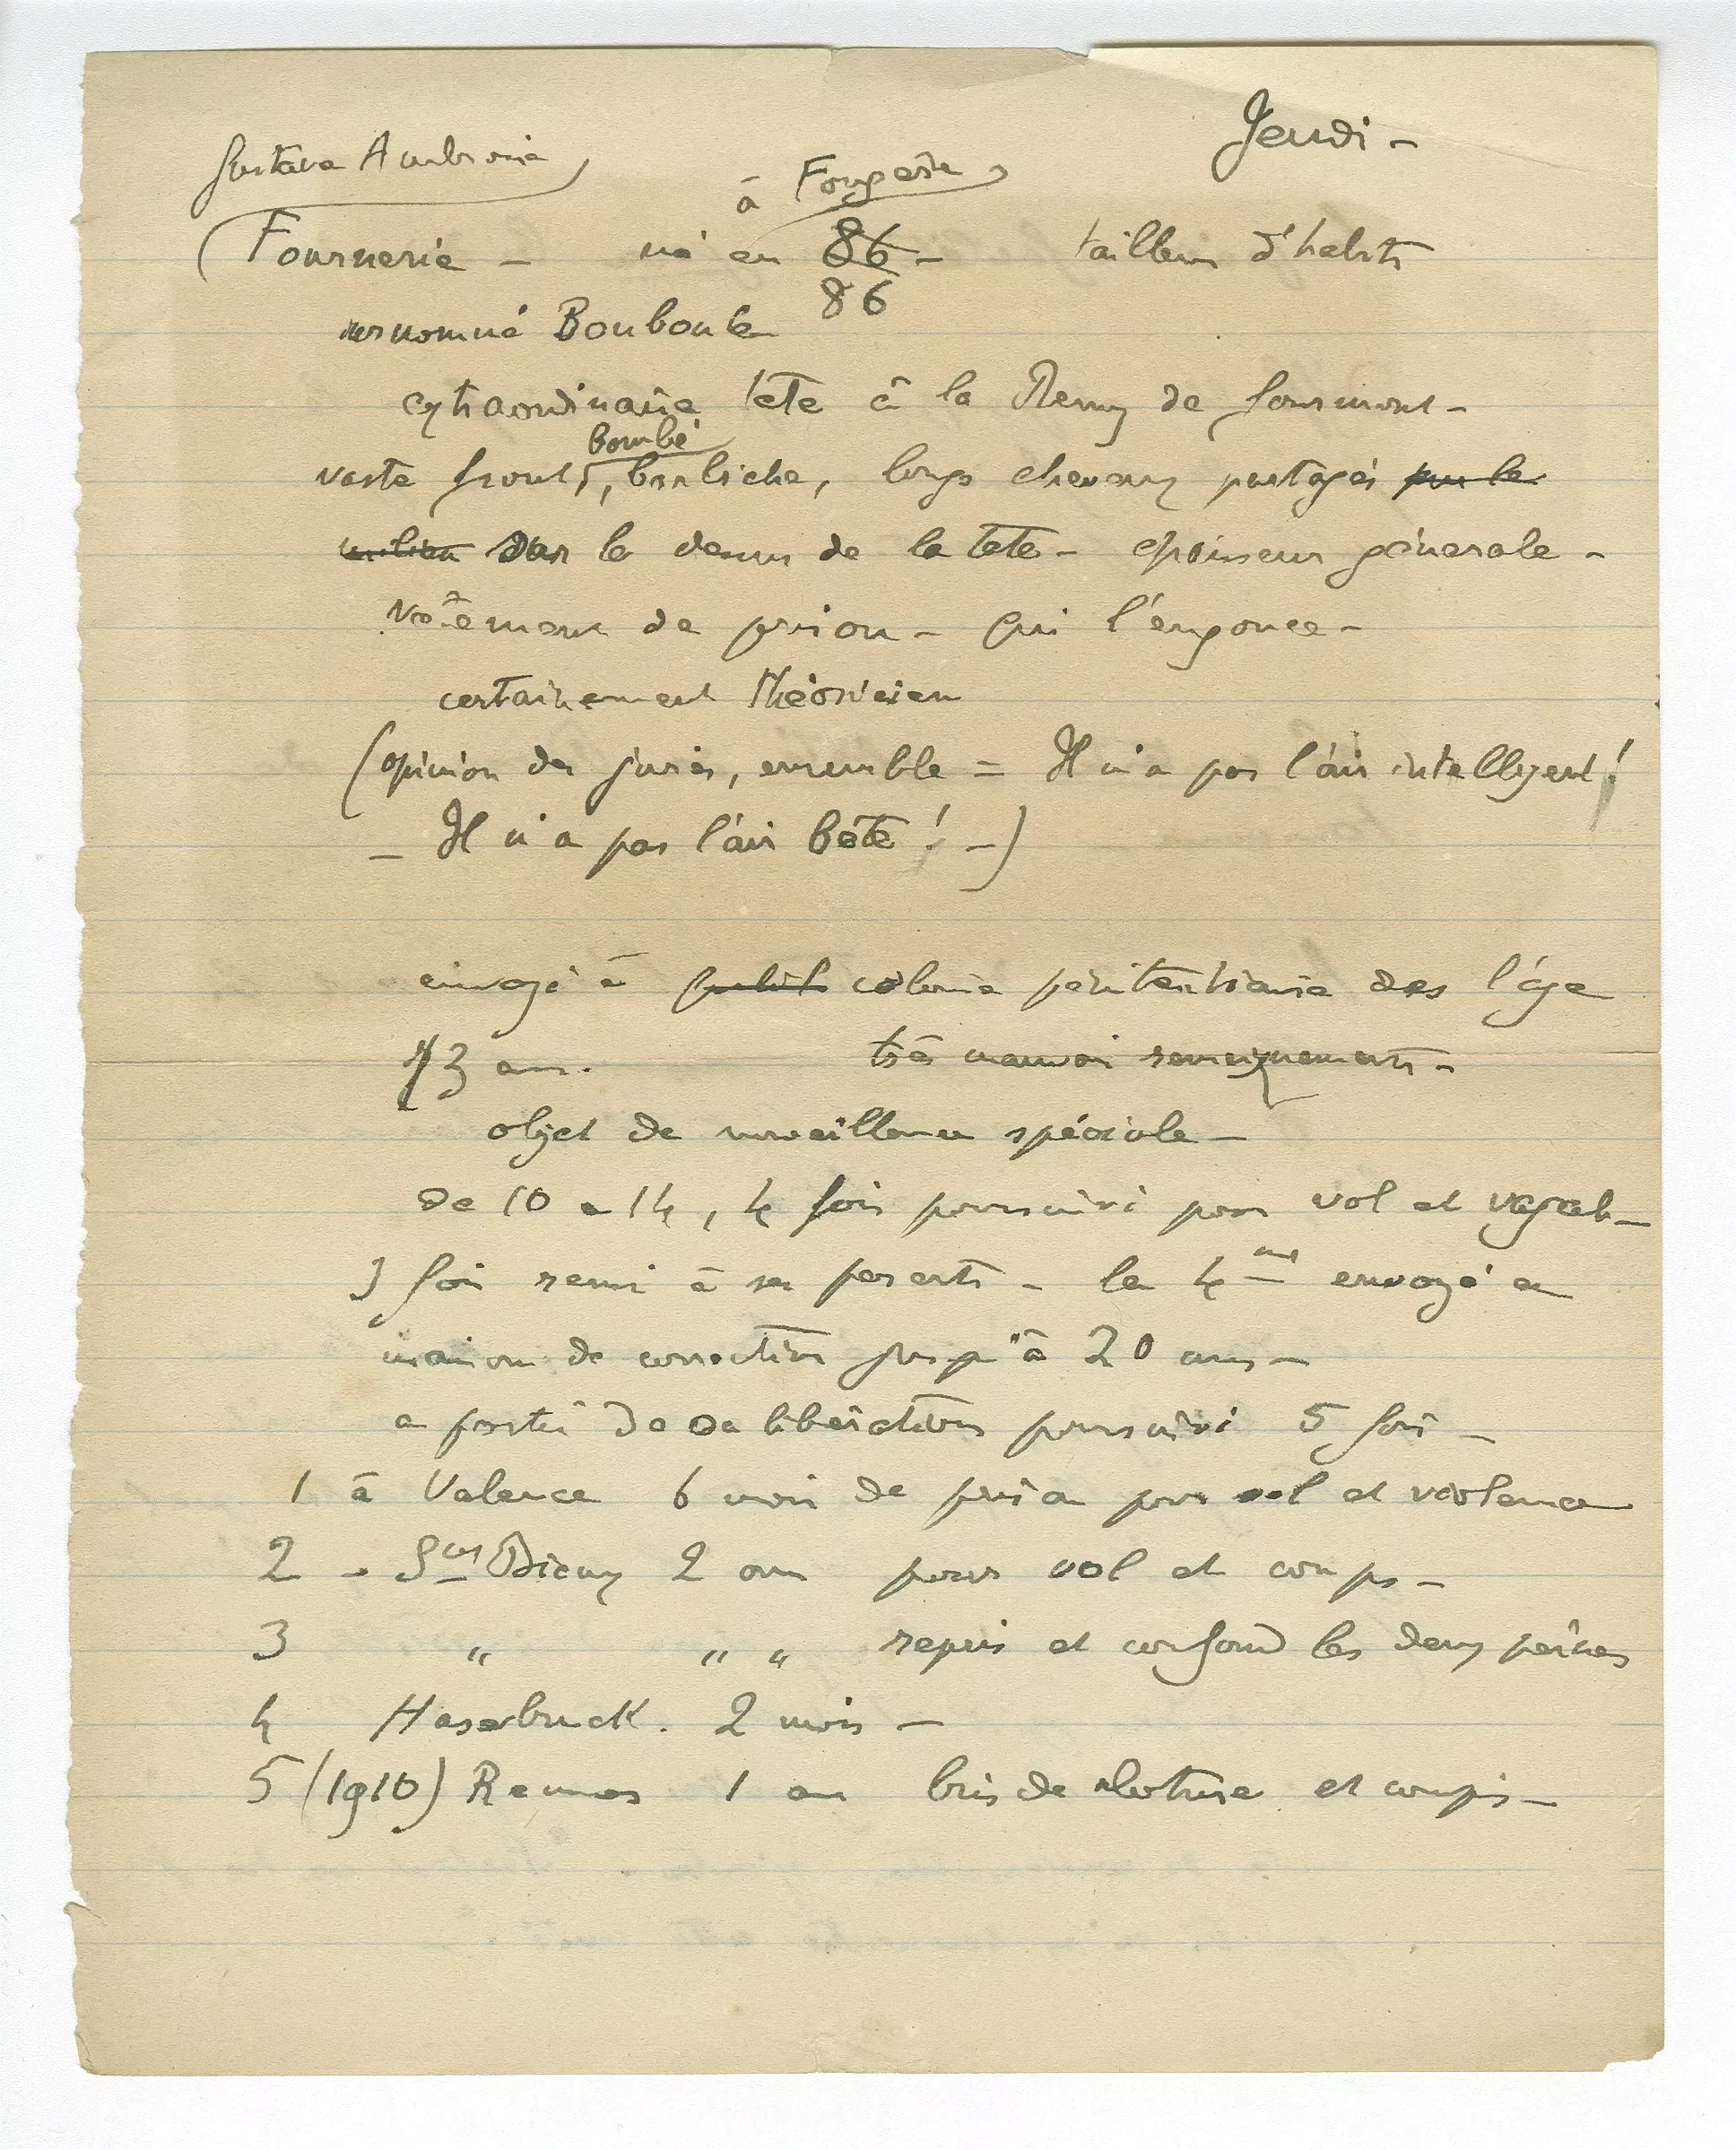 Jeudi -
Gustave Ambroise
à Fougère
Fournerie - né en 86 - tailleur d'habits
86
surnommé Bouboule
extraordinaire tête à la Remy de Gourmont -
bombé
vaste front, barbiche, longs cheveux partagés par le
milieu sur le dessus de la tête - épaisseur générale -
vêtement de prison - qui l'engonce -
certainement théoricien
(opinion des jurés, ensemble = Il n'a pas l'air intelligent !
- Il n'a pas l'air bête ! -)
envoyé à colonie pénitentiaire dès l'âge
13 ans. très mauvais renseignements -
objet de surveillance spéciale -
de 10 a 14, 4 fois poursuivi pour vol et vagab -
3 fois remis à ses parents - la 4me envoyé en
maison de correction jusqu'à 20 ans -
a partir de sa libération poursuivi 5 fois -
1 à Valence 6 mois de prison pour vol et violence
2 - 2 ans pour vol et coups -
3 " " " repris et confond les deux peines
4 Hasebruck. 2 mois -
5 (1910) Rennes 1 an bris de cloture et coups -